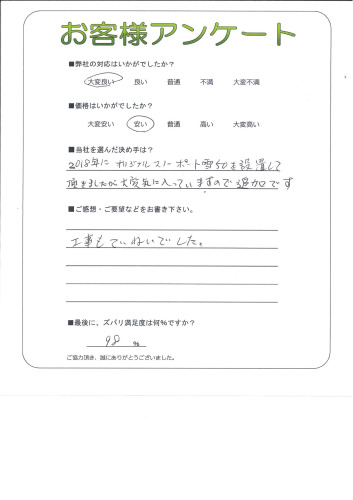 お客様アンケート
■弊社の対応はいかがでしたか?
大変良い 良い 普通 不満 大変不満
■価格はいかがでしたか?
大変安い 安い 普通 高い 大変高い
■当社を選んだ決め手は?
2018年に オリジナルスノーポート雪50を設置して
頂きましたが大変気に入っていますので追加です
■ご感想・ご要望などをお書き下さい。
工事もていねいでした。
■最後に、ズバリ満足度は何%ですか?
98 %
ご協力頂き、誠にありがとうございました。